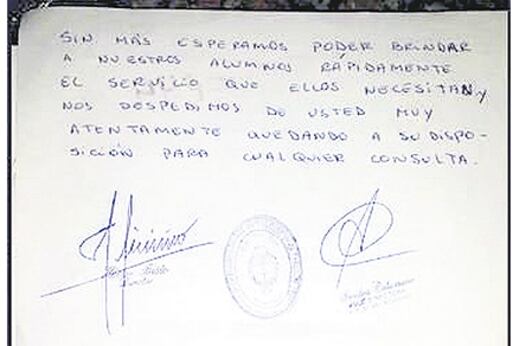 SIN MÁS ESPERAMOS PODER BRINDAR
A NUESTROS ALUMNOS RÁPIDAMENTE
EL SERVICIO QUE ELLOS NECESITAN, y
NOS DESPEDIMOS DE USTED MUY
ATENTAMENTE QUEDANDO A SU DISPO-
SICIÓN PARA CUALQUIER CONSULTA.